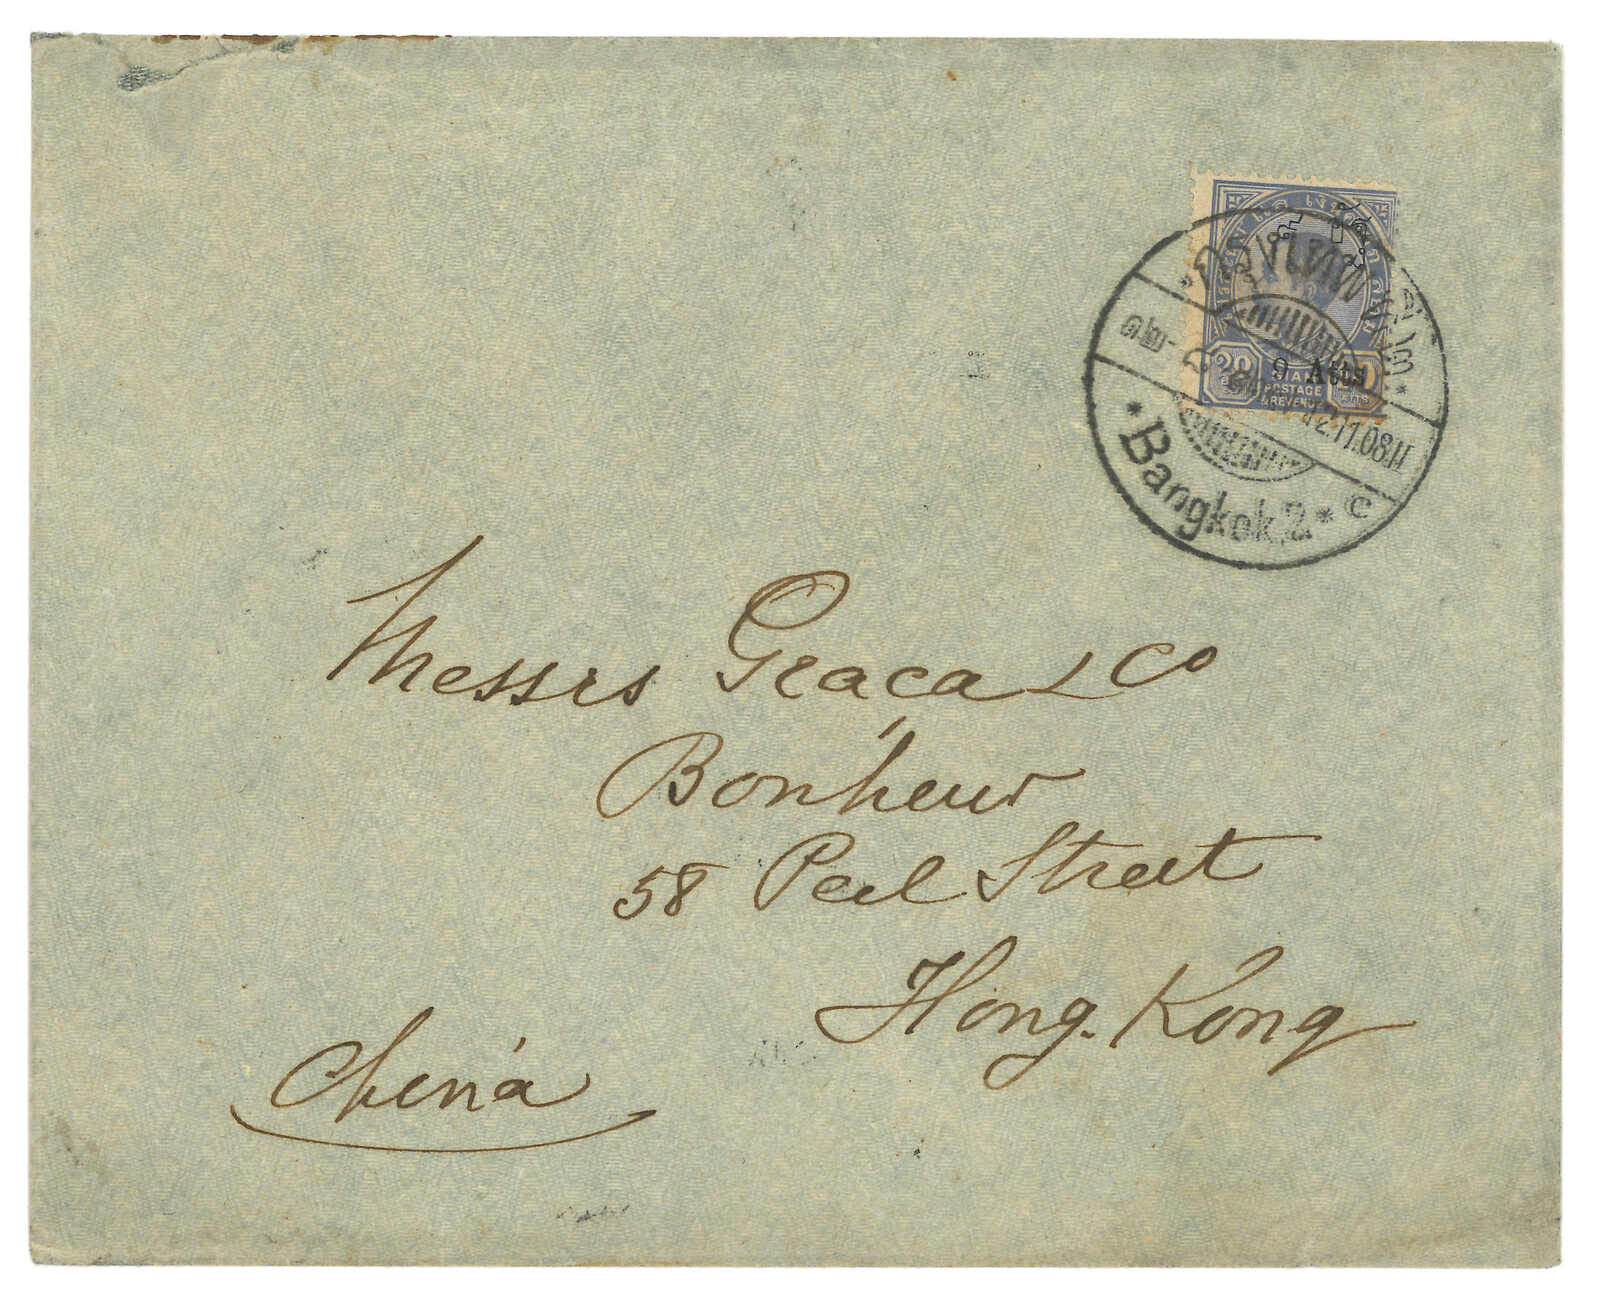 9 Atts
SIAM
POSTAGE
& REVENUE
กรุงเทพฯ
12.11.08.
* Bangkok 2 * c
Messrs Graca & Co
Bonheur
58 Peel Street
Hong-Kong
China